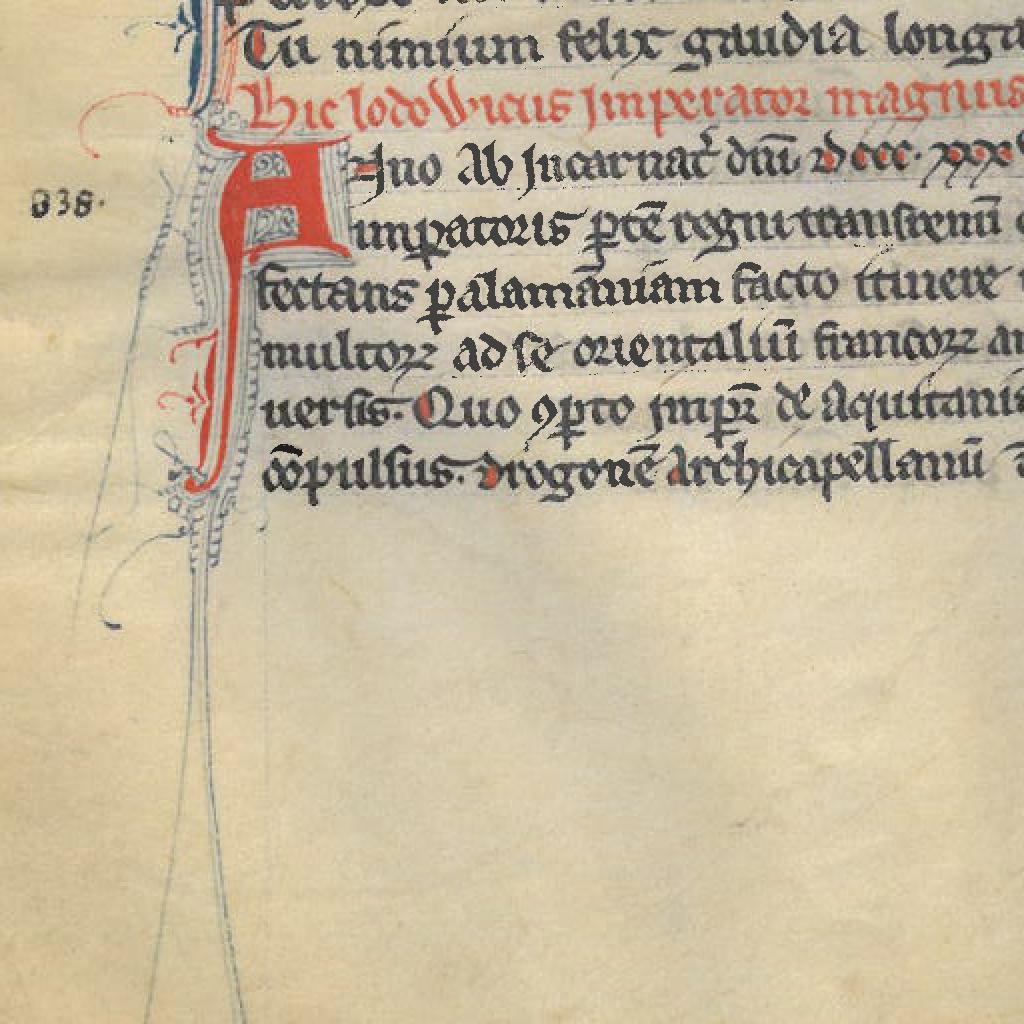 Tu nimium felix gaudia longa
Hic lodowicus Jmperator magnus
838.
Anno Ab Jncarnat̄ dn̄i dccc. xxxv
imꝑatoris ꝑtē regni transrenū
fectans ꝑ alamāniam facto itinere
multoꝝ ad se orientaliū francoꝝ
uersis. Quo ꝯꝑto jmꝑr̄ de Aquitanis
cōpulsus. drogonē Archicapellanū